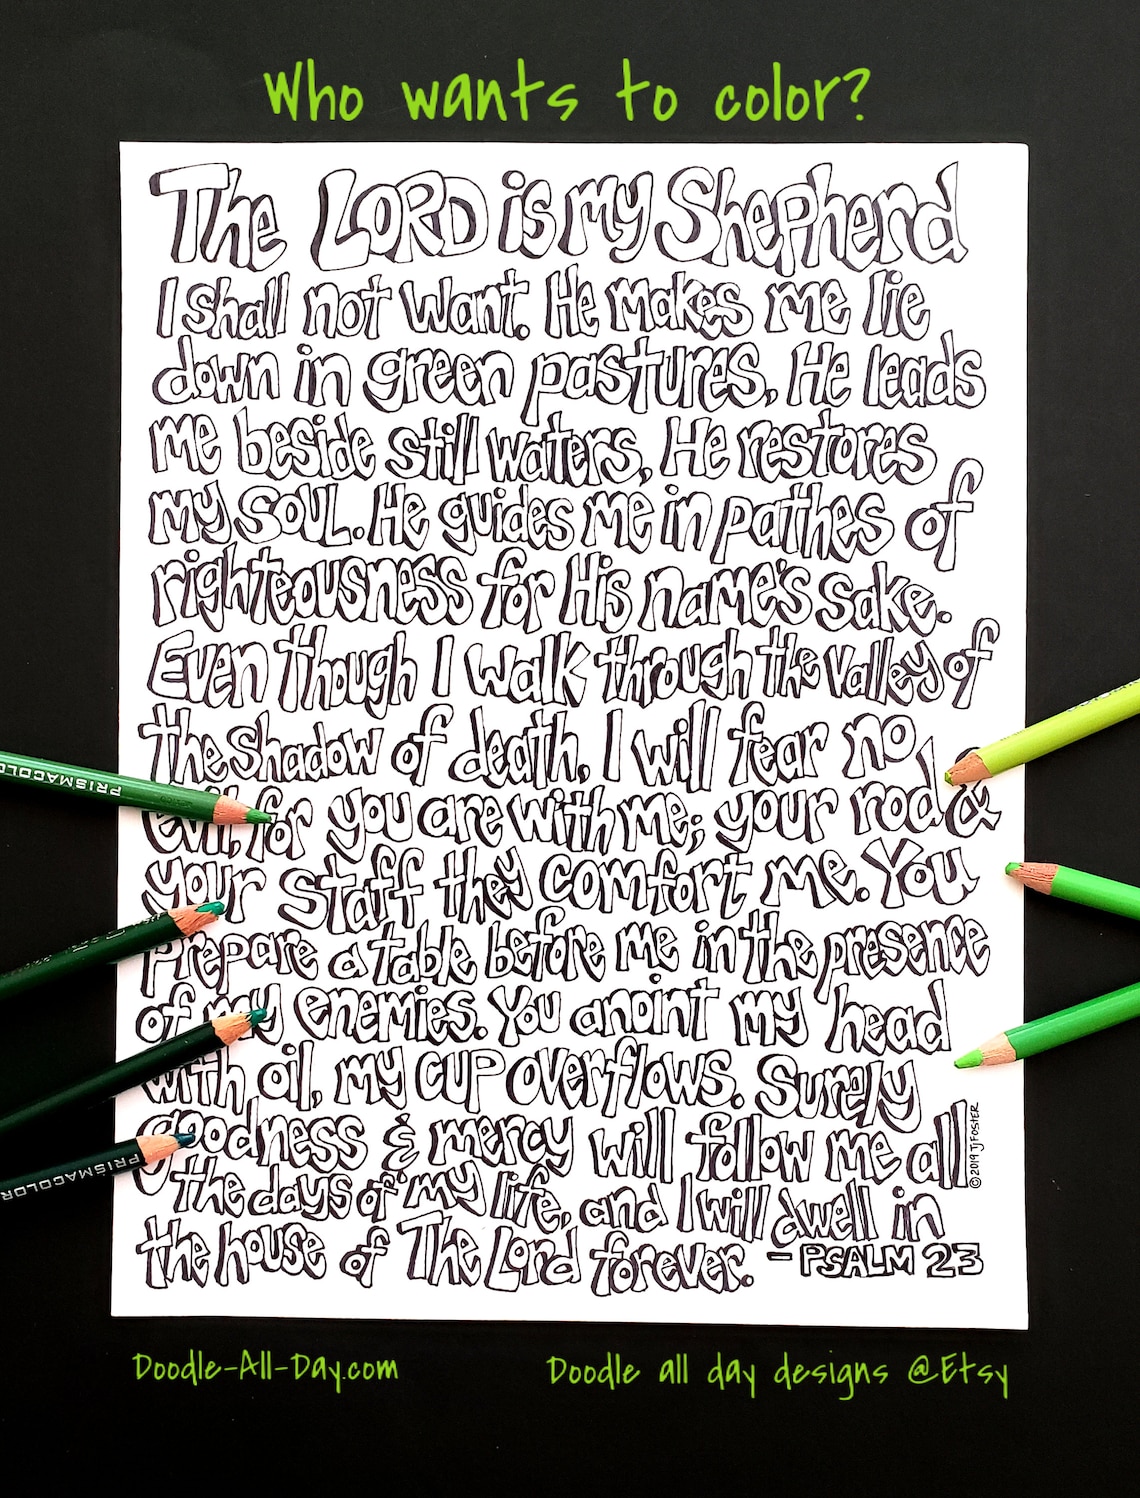 Who wants to color?
The LORD is my Shepherd
I shall not want. He makes me lie
down in green pastures, He leads
me beside still waters, He restores
my SOUL. He guides me in pathes of
righteousness for His name's sake.
Even though I walk through the valley of
the shadow of death, I will fear no
evil, for you are with me; your rod &
your staff they comfort me. You
prepare a table before me in the presence
of my enemies. You anoint my head
with oil, my cup overflows. Surely
goodness & mercy will follow me all
the days of my life, and I will dwell in
the house of The Lord forever. - PSALM 23
©2019 TJ FOSTER
PRISMACOLO
PRISMACOLOR
Doodle-All-Day.com
Doodle all day designs @Etsy